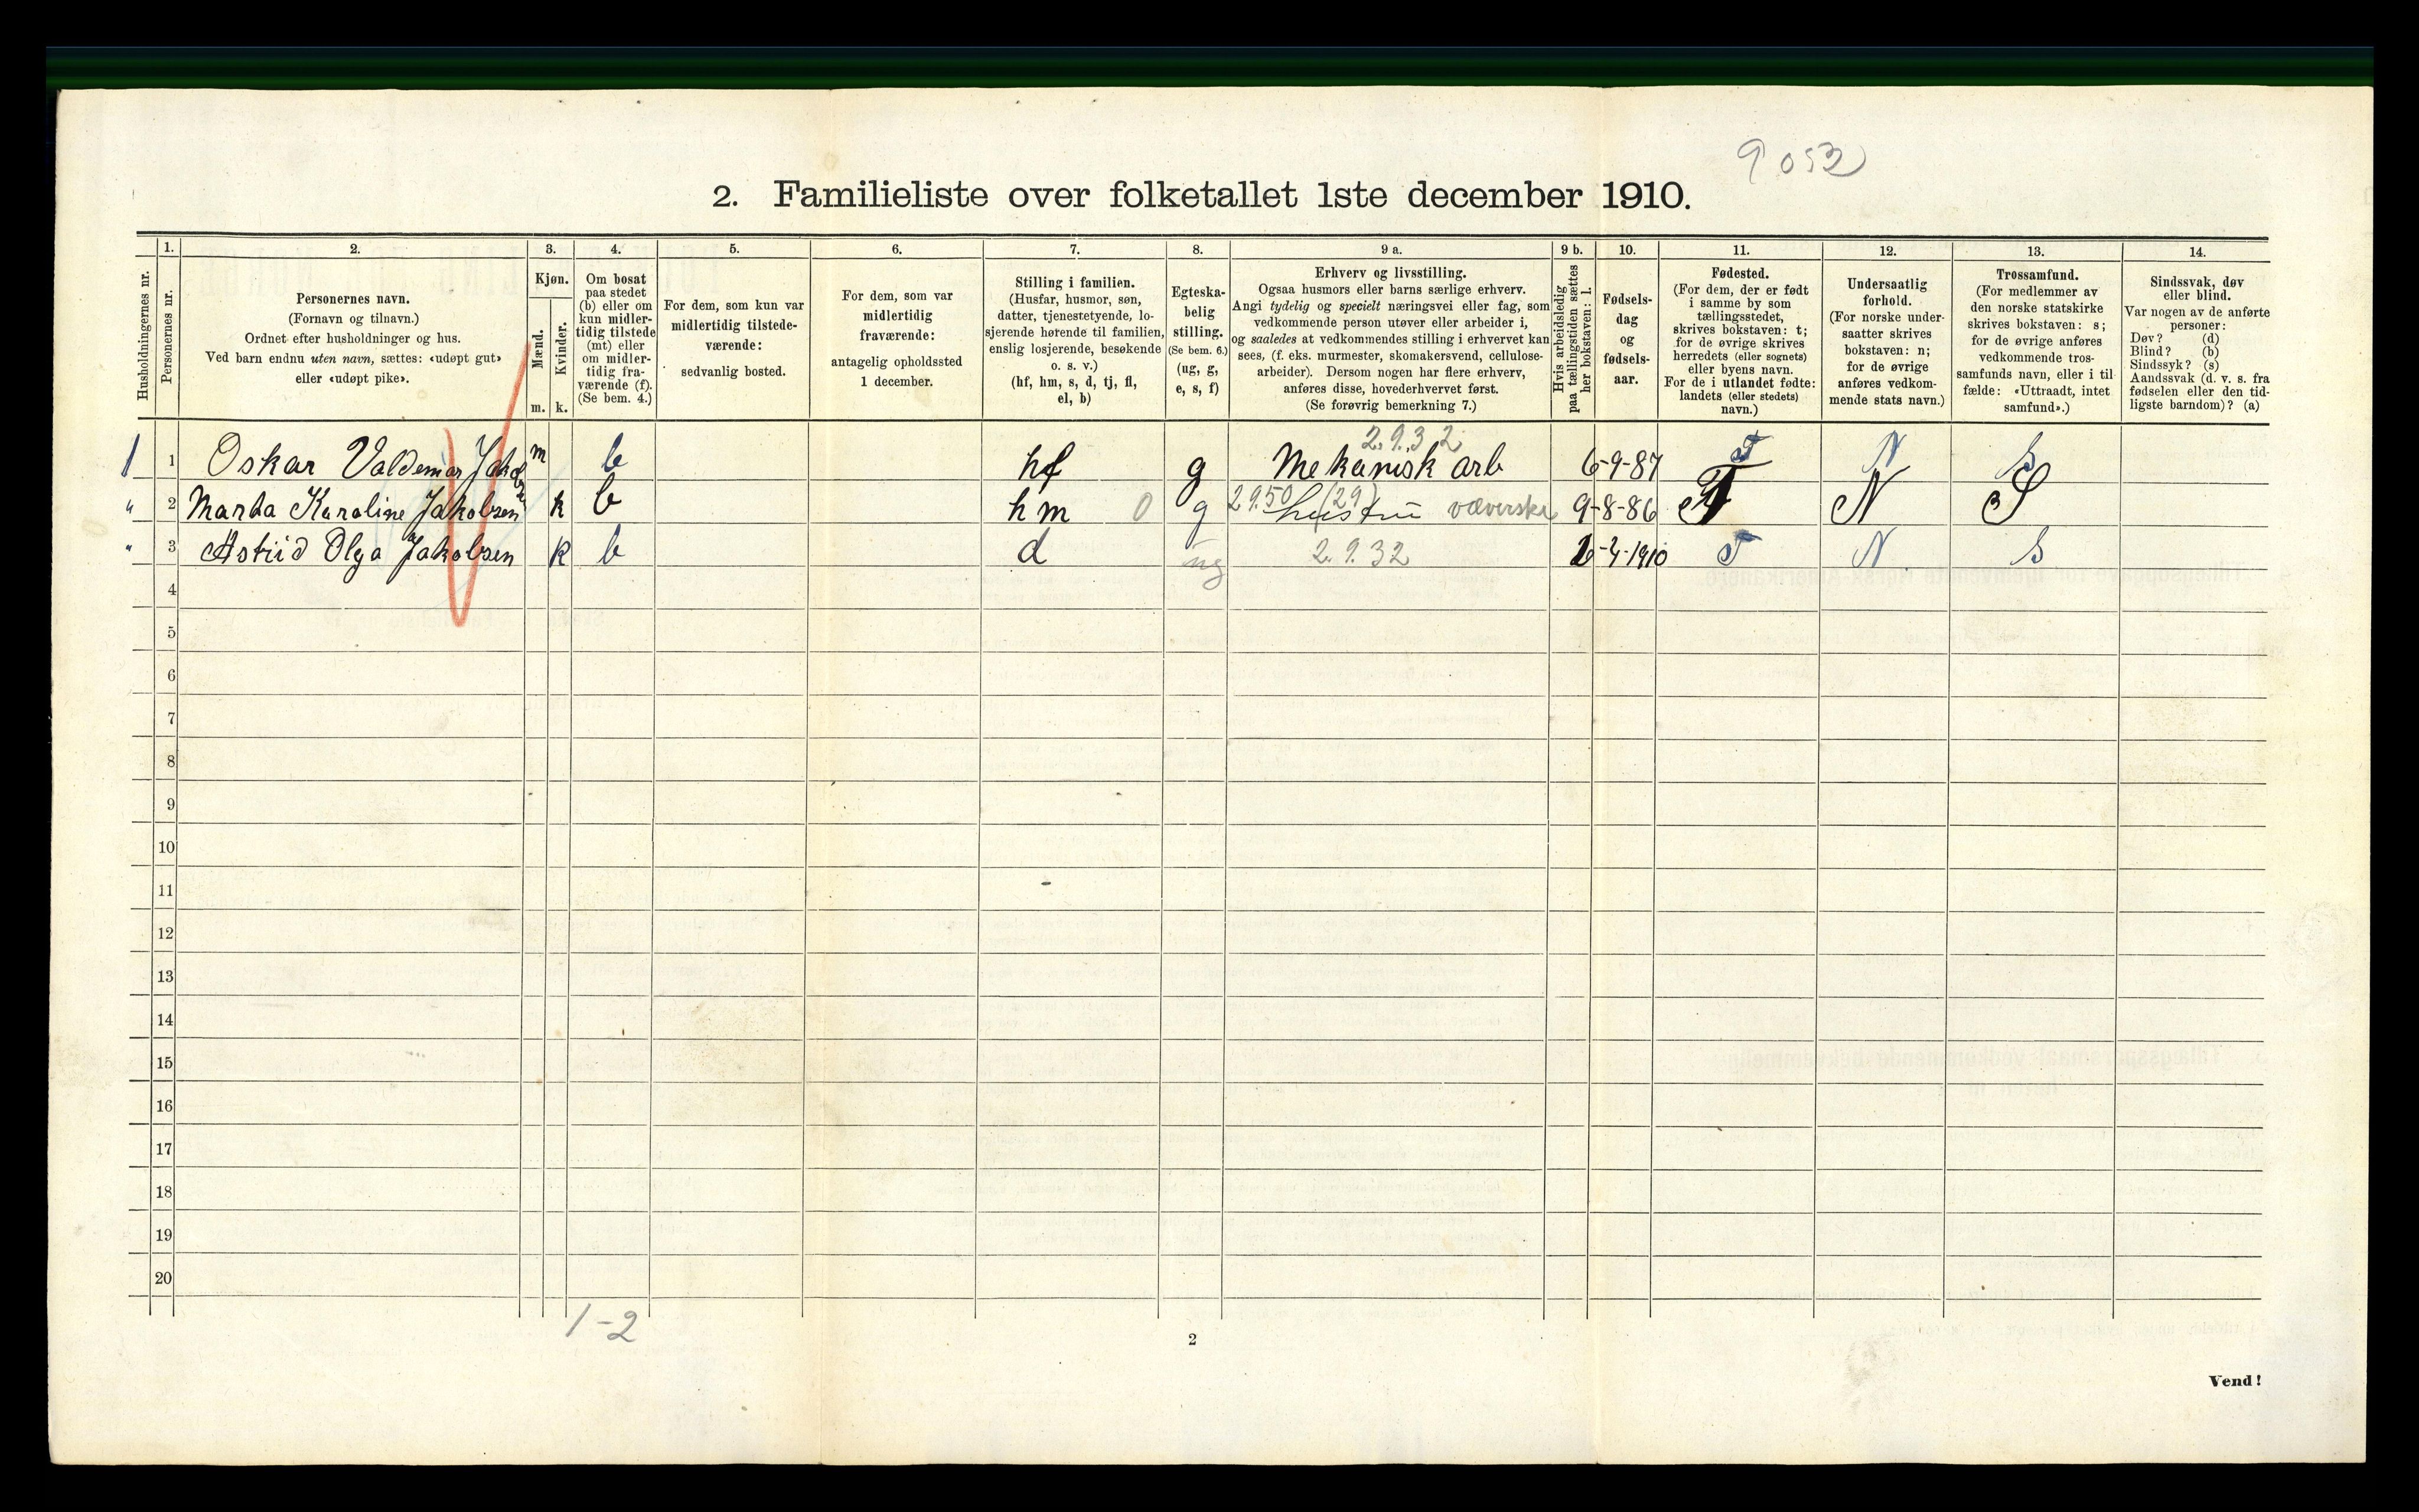 9053
2. Familieliste over folketallet 1ste december 1910.
1. 2. 3. 4. 5. 6. 7. 8. 9 a. 9 b. 10. 11. 12. 13. 14.
Husholdningernes nr.
Personernes nr.
Personernes navn.
(Fornavn og tilnavn.)
Ordnet efter husholdninger og hus.
Ved barn endnu uten navn, sættes: «udøpt gut»
eller «udøpt pike».
Kjøn.
Mænd.
Kvinder.
m. k.
Om bosat
paa stedet
(b) eller om
kun midler-
tidig tilstede
(mt) eller
om midler-
tidig fra-
værende (f).
(Se bem. 4.)
For dem, som kun var
midlertidig tilstede-
værende:
sedvanlig bosted.
For dem, som var
midlertidig
fraværende:
antagelig opholdssted
1 december.
Stilling i familien.
(Husfar, husmor, søn,
datter, tjenestetyende, lo-
sjerende hørende til familien,
enslig losjerende, besøkende
o. s. v.)
(hf, hm, s, d, tj, fl,
el, b)
Egteska-
belig
stilling.
(Se bem. 6.)
(ug, g,
e, s, f)
Erhverv og livsstilling.
Ogsaa husmors eller barns særlige erhverv.
Angi tydelig og specielt næringsvei eller fag, som
vedkommende person utøver eller arbeider i,
og saaledes at vedkommendes stilling i erhvervet kan
sees, (f. eks. murmester, skomakersvend, cellulose-
arbeider). Dersom nogen har flere erhverv,
anføres disse, hovederhvervet først.
(Se forøvrig bemerkning 7.)
Hvis arbeidsledig
paa tællingstiden sættes
her bokstaven: l.
Fødsels-
dag
og
fødsels-
aar.
Fødested.
(For dem, der er født
i samme by som
tællingsstedet,
skrives bokstaven: t;
for de øvrige skrives
herredets (eller sognets)
eller byens navn.
For de i utlandet fødte:
landets (eller stedets)
navn.)
Undersaatlig
forhold.
(For norske under-
saatter skrives
bokstaven: n;
for de øvrige
anføres vedkom-
mende stats navn.)
Trossamfund.
(For medlemmer av
den norske statskirke
skrives bokstaven: s;
for de øvrige anføres
vedkommende tros-
samfunds navn, eller i til
fælde: «Uttraadt, intet
samfund».)
Sindssvak, døv
eller blind.
Var nogen av de anførte
personer:
Døv? (d)
Blind? (b)
Sindssyk? (s)
Aandssvak (d. v. s. fra
fødselen eller den tid-
ligste barndom)? (a)
2.9.32
1 1 Oskar Valdemar Jakobsen m b hf g Mekanisk arb 6-9-87 T N S
" 2 Marta Karoline Jakobsen k b hm 0 g 2950 (29) hustru væverske 9-8-86 T N S
" 3 Astrid Olga Jakobsen k b d ug 2.9.32 T N S
4
5
6
7
8
9
10
11
12
13
14
15
16
17
18
19
20
1-2
2
Vend!